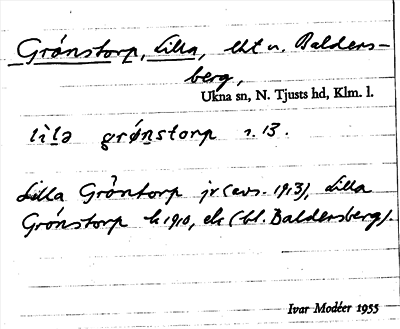 Grönstorp, Lilla, lht u. Balders-
berg,
Ukna sn, N. Tjusts hd, Klm. l.
lilə grǿnstorp 1. 13.
Lilla Gröntorp jr (avs. 1913), Lilla
Grönstorp k 1910, ek (bl. Baldersberg).
Ivar Modéer 1955